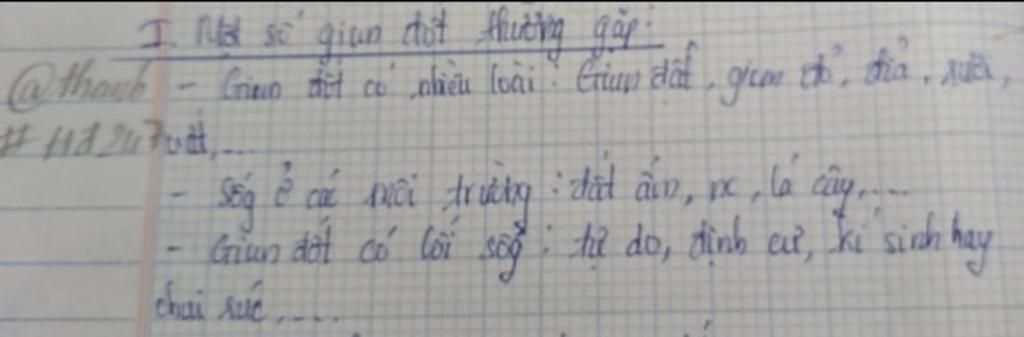 I. Một số giun đốt thường gặp:
@thanh - Giun đốt có nhiều loài: Giun đất, giun đỏ, đỉa, rươi,
# Hd247 vắt,....
- Sốg ở các môi trường: đất ẩm, nc, lá cây,....
- Giun đốt có lối sốg: tự do, định cư, kí sinh hay
chui rúc,....